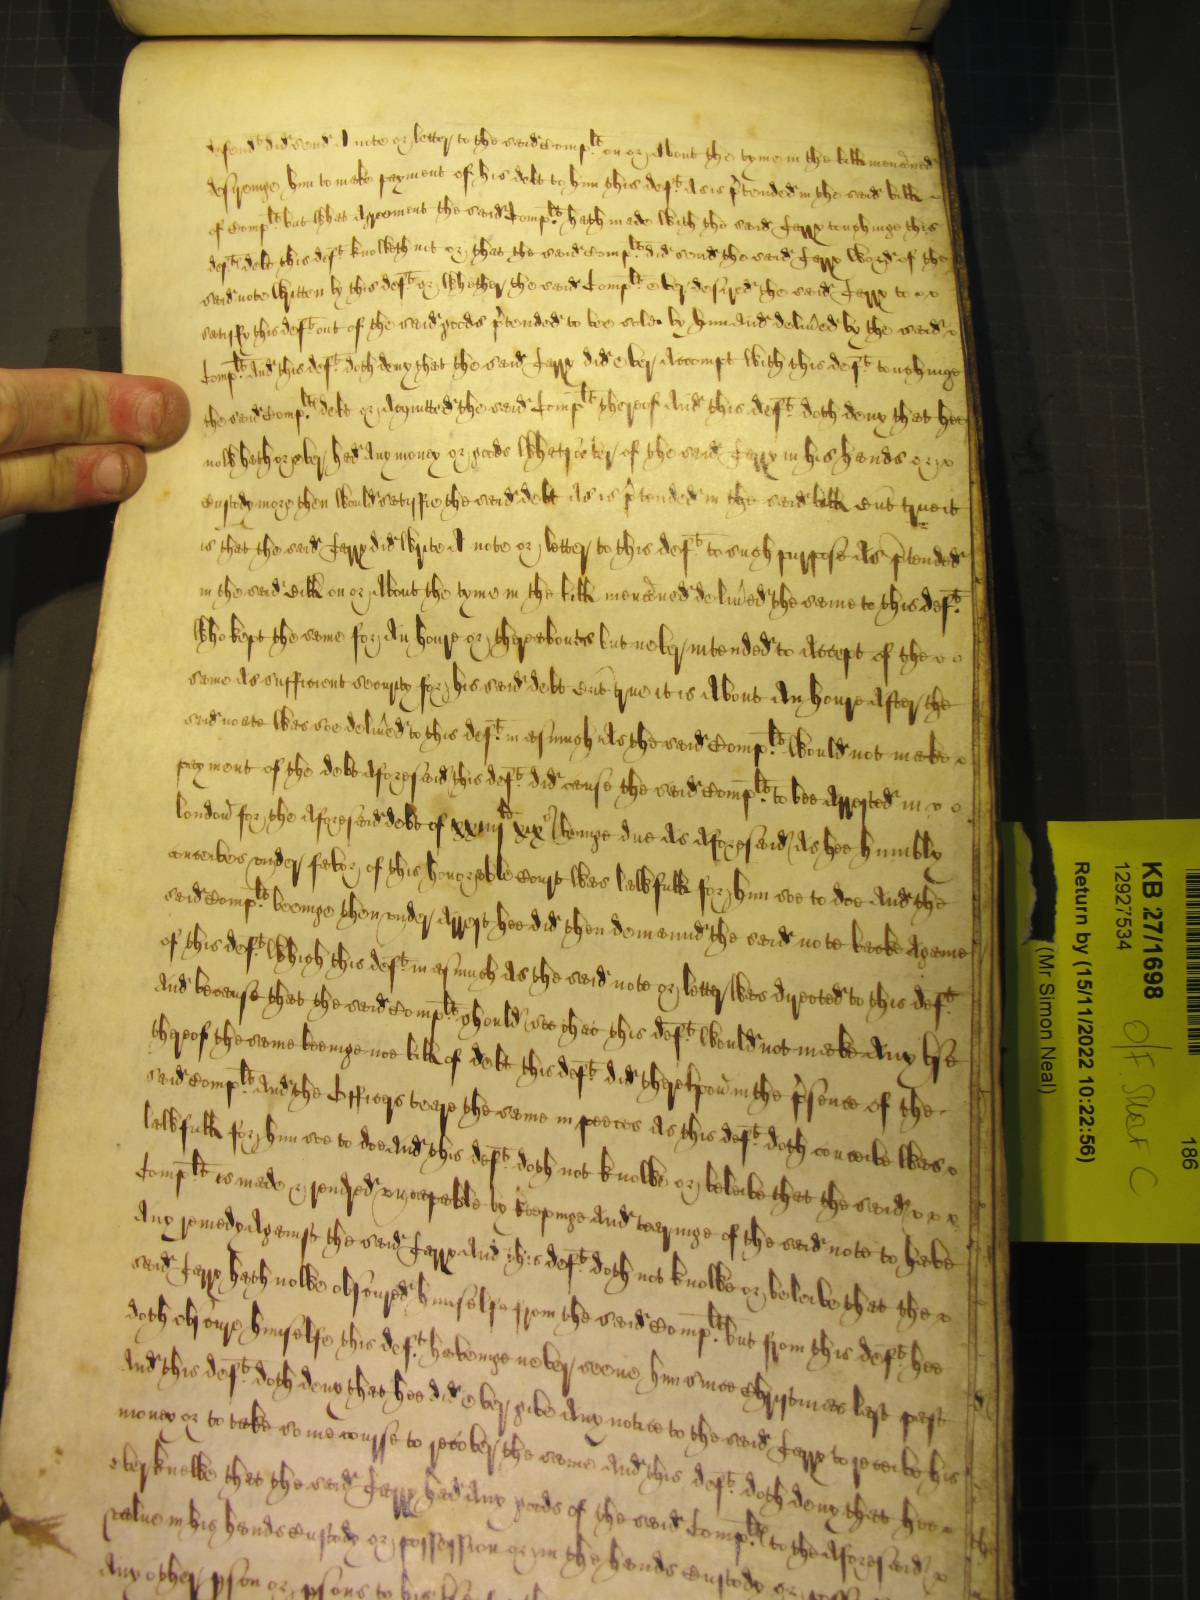 defend.t did send A note or letter to the said Comp.lt on or about the tyme in the bill menc̄oned
desyreinge him to make payment of his debt to him this def.t As is p̄tended in the said bill
of Comp.lt but what Agreement the said Comp.lt hath made with the said Farr touchinge this
def.ts debt this def.t knoweth not or that the said Comp.lt did send the said Farr word of the
said note written by this def.t or whether the said Comp.lt ever desyred the said Farr to
satisfy this def.t out of the said goods p̄tended to bee sold by him And delivēed by the said
Comp.lt And this def.t doth deny that the said Farr did ever Accompt with this def.t touchinge
the said Comp.lts debt or Acquitted the said Comp.lt thereof And this def.t doth deny that hee
now hath or ever had Any money or goods whatsoever of the said Farr in his hands or
Custody more then would satisfie the said debt As is p̄tended in the said bill But true it
is that the said Farr did write A note or letter to this def.t to such purpose As p̄tended
in the said Bill on or About the tyme in the bill menc̄oned delivēed the same to this def.t
Who kept the same for An houre or thereabouts but never intended to Accept of the
same As sufficient security for his said debt But true it is About An houre After the
said noate was soe delivēed to this def.t in asmuch As the said Comp.lt would not make
payment of the debt Aforesaid this def.t did cause the said Comp.lt to bee Arrested in
London for the Aforesaid debt of xxiiij.l xix.s beinge due As aforesaid As hee humbly
conceives under favor of this honorable Court was lawfull for him soe to doe And the
said Comp.lt beeinge then under Arrest hee did then demaund the said note backe Againe
of this def.t Which this def.t in asmuch As the said note or letter was directed to this def.t
And because that the said Comp.lt should see that this def.t would not make Any use
thereof the same beeinge noe bill of debt this def.t did thereupon in the p̄sence of the
said Comp.lt And the Officers teare the same in peeces As this def.t doth conceive was
lawfull for him soe to doe And this def.t doth not knowe or beleive that the said
Comp.lt is made or rendred uncapable by keepinge And tearinge of the said note to have
Any remedy Against the said Farr And this def.t doth not knowe or beleive that the
said Farr hath nowe obscured himselfe from the said Comp.lt but from this def.t hee
doth obscure himselfe this def.t haveinge never seene him since Christmas last past
And this def.t doth deny that hee did ever give Any notice to the said Farr to receive his
money or to take some course to recover the same And this def.t doth deny that hee
ever knewe that the said Farr had Any goods of the said Comp.lts to the Aforesaid
value in his hands Custody or possession or in the hands Custody or
Any other p̄son or p̄sons to his
KB 27/1698
12927534
O/F Shelf C
Return by (15/11/2022 10:22:56)
(Mr Simon Neal)
186